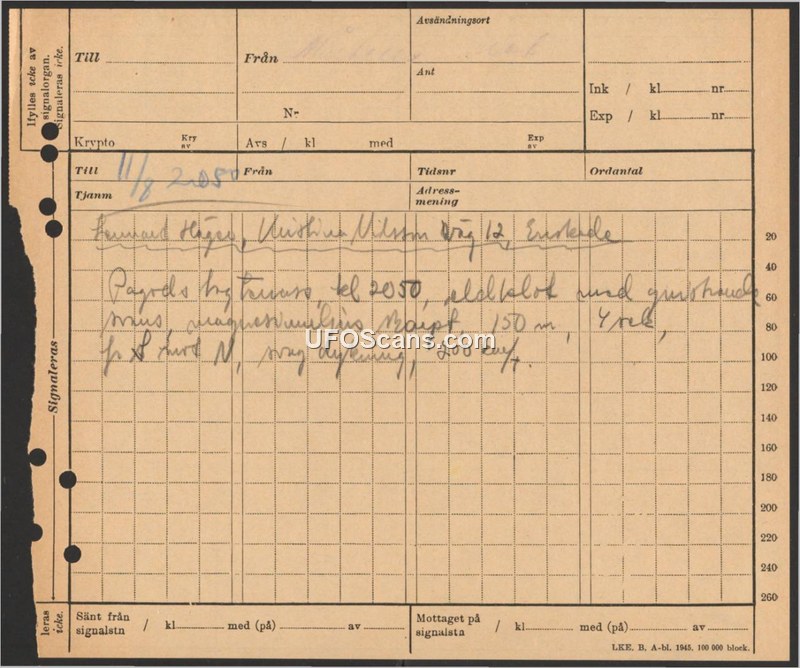 Ifylles icke av
signalorgan.
Signaleras icke.
Avsändningsort
Till
Från
Ant
Nr
Ink / kl nr
Exp / kl nr
Krypto
Kry
av
Avs / kl med
Exp
av
Till
Från
Tidsnr
Ordantal
11/8 2050
Tjanm
Adress-
mening
Kristina Nilsson väg 12, Enskede
kl 2050, eldklot med
svans, 150 m, 4 sek,
fr S mot N, svag dykning, 200 km/t.
UFOScans.com
Signaleras
20
40
60
80
100
120
140
160
180
200
220
240
260
leras
icke.
Sänt från
signalstn / kl med (på) av
Mottaget på
signalsta / kl med (på) av
LKE. B. A-bl. 1945. 100 000 block.